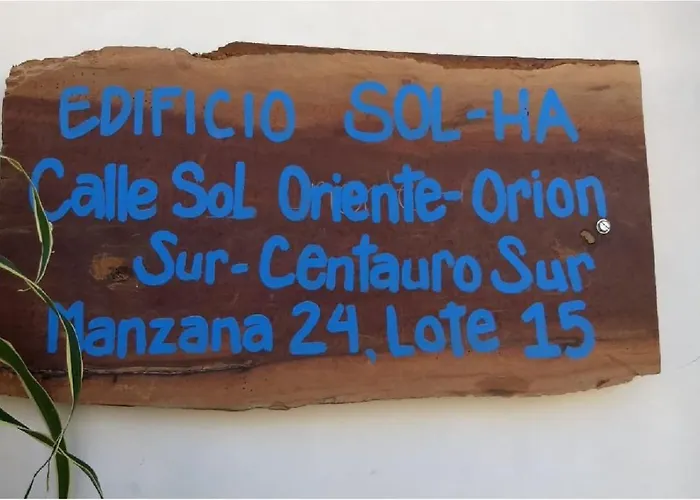 EDIFICIO SOL-HA
Calle Sol Oriente-Orion
Sur-Centauro Sur
Manzana 24, Lote 15